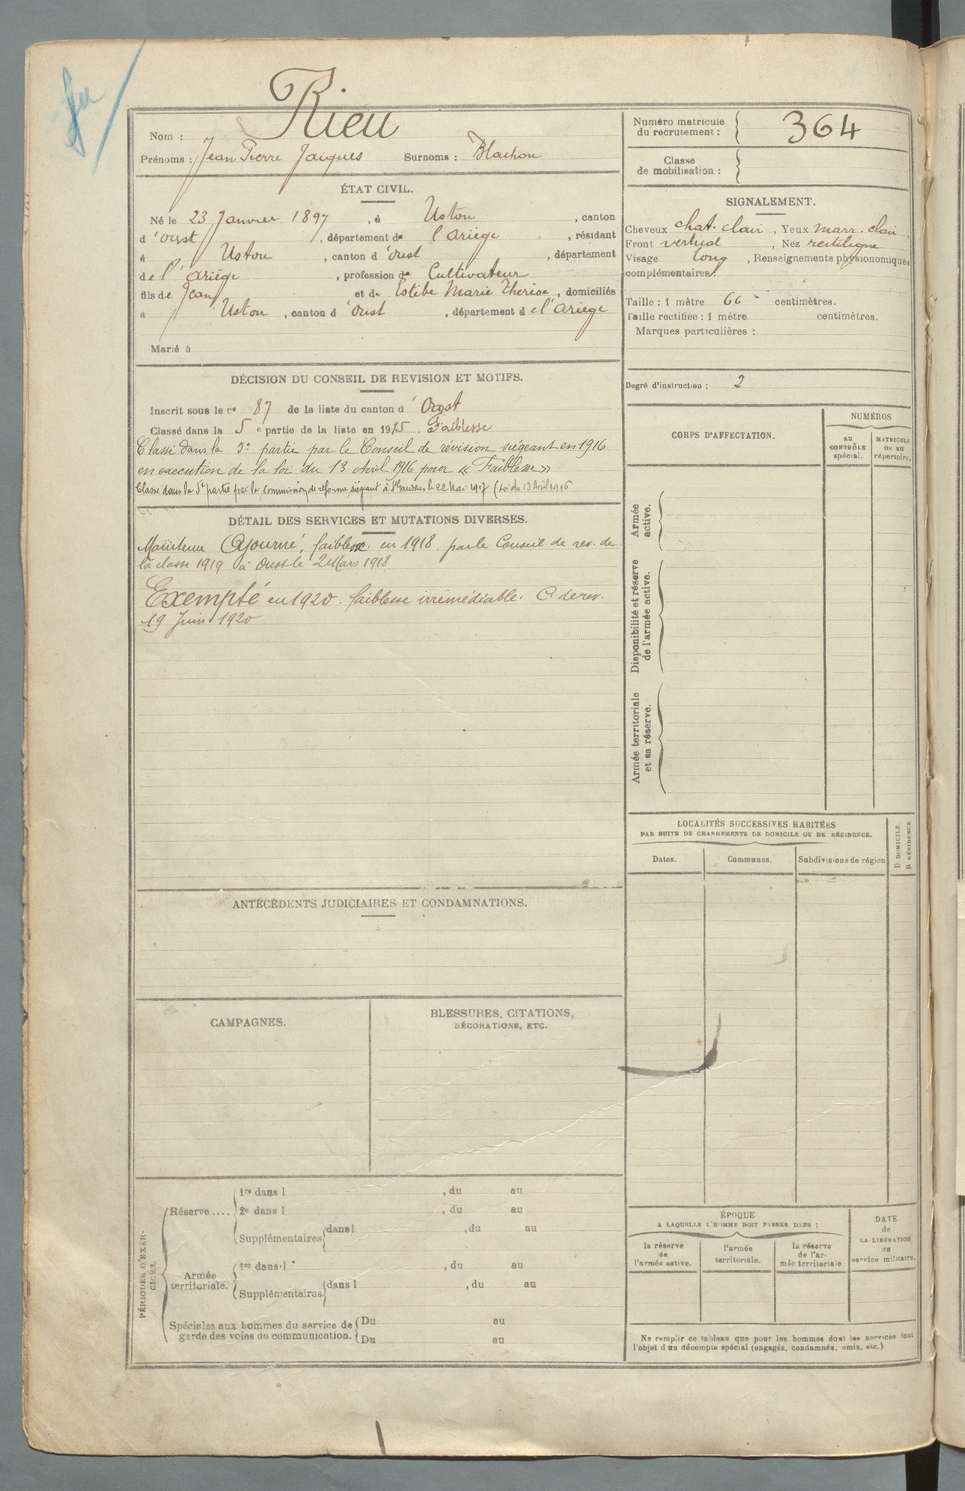 Rieu
Nom :
Prénoms : Jean Pierre Jacques Surnoms : Blachon
Numéro matricule du recrutement : 364
Classe de mobilisation :
ÉTAT CIVIL.
Né le 23 Janvier 1897, à Ustou, canton
d'Oust, département de l'Ariège, résidant
à Ustou, canton d'Oust, département
de l'Ariège, profession de Cultivateur
fils de Jean et de Estèbe Marie Thérèse, domiciliés
à Ustou, canton d'Oust, département de l'Ariège
Marié à
SIGNALEMENT.
Cheveux chat. clair, Yeux marr. clair
Front vertical, Nez rectiligne
Visage long, Renseignements physionomiques
complémentaires
Taille : 1 mètre 66 centimètres.
Taille rectifiée : 1 mètre centimètres.
Marques particulières :
Degré d'instruction : 2
DÉCISION DU CONSEIL DE REVISION ET MOTIFS.
Inscrit sous le n° 87 de la liste du canton d'Oust
Classé dans la 5e partie de la liste en 1915 Faiblesse
Classé dans la 5e partie par le Conseil de révision siégeant en 1916
en exécution de la loi du 13 avril 1916 pour « Faiblesse »
Classé dans la 5e partie par la commission de réforme siégeant à St Girons le 22 Mai 1917 (Loi du 13 Avril 1916
DÉTAIL DES SERVICES ET MUTATIONS DIVERSES.
Maintenu Ajourné, faiblesse en 1918 par le Conseil de rev. de
la classe 1919 à Oust le 2 Mars 1918
Exempté en 1920. faiblesse irrémédiable. C. de rev.
19 Juin 1920
CORPS D'AFFECTATION.
NUMÉROS
AU CONTRÔLE spécial.
MATRICULE OU AU répertoire.
Armée active.
Disponibilité et réserve de l'armée active.
Armée territoriale et sa réserve.
LOCALITÉS SUCCESSIVES HABITÉES
PAR SUITE DE CHANGEMENTS DE DOMICILE OU DE RÉSIDENCE.
Dates.
Communes.
Subdivisions de région
D DOMICILE
R RÉSIDENCE
ANTÉCÉDENTS JUDICIAIRES ET CONDAMNATIONS.
CAMPAGNES.
BLESSURES, CITATIONS,
DÉCORATIONS, ETC.
PÉRIODES D'EXERCICES.
Réserve....
1re dans l , du au
2e dans l , du au
Supplémentaires dans l , du au
Armée territoriale.
1re dans l , du au
Supplémentaires dans l , du au
Spéciales aux hommes du service de garde des voies de communication.
Du au
Du au
ÉPOQUE
A LAQUELLE L'HOMME DOIT PASSER DANS :
la réserve de l'armée active.
l'armée territoriale.
la réserve de l'armée territoriale
DATE de LA LIBÉRATION du service militaire.
Ne remplir ce tableau que pour les hommes dont les services font
l'objet d'un décompte spécial (engagés, condamnés, omis, etc.)